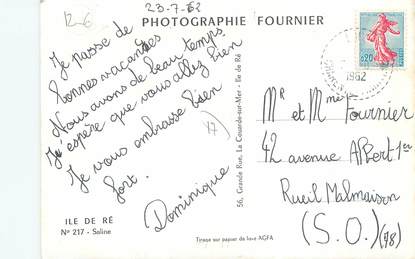 12-6
23-7-62
PHOTOGRAPHIE FOURNIER
Je passe de
bonnes vacances
Nous avons de beau temps.
J'espère que vous allez bien
Je vous embrasse bien
fort.
Dominique
ILE DE RÉ
N° 217 - Saline
56, Grande Rue, La Couarde-sur-Mer - Ile de Ré
Tirage sur papier de luxe AGFA
0,20
1962
Mr et Mme Fournier
42 avenue Albert 1er
Rueil Malmaison
(S.O.) (78)